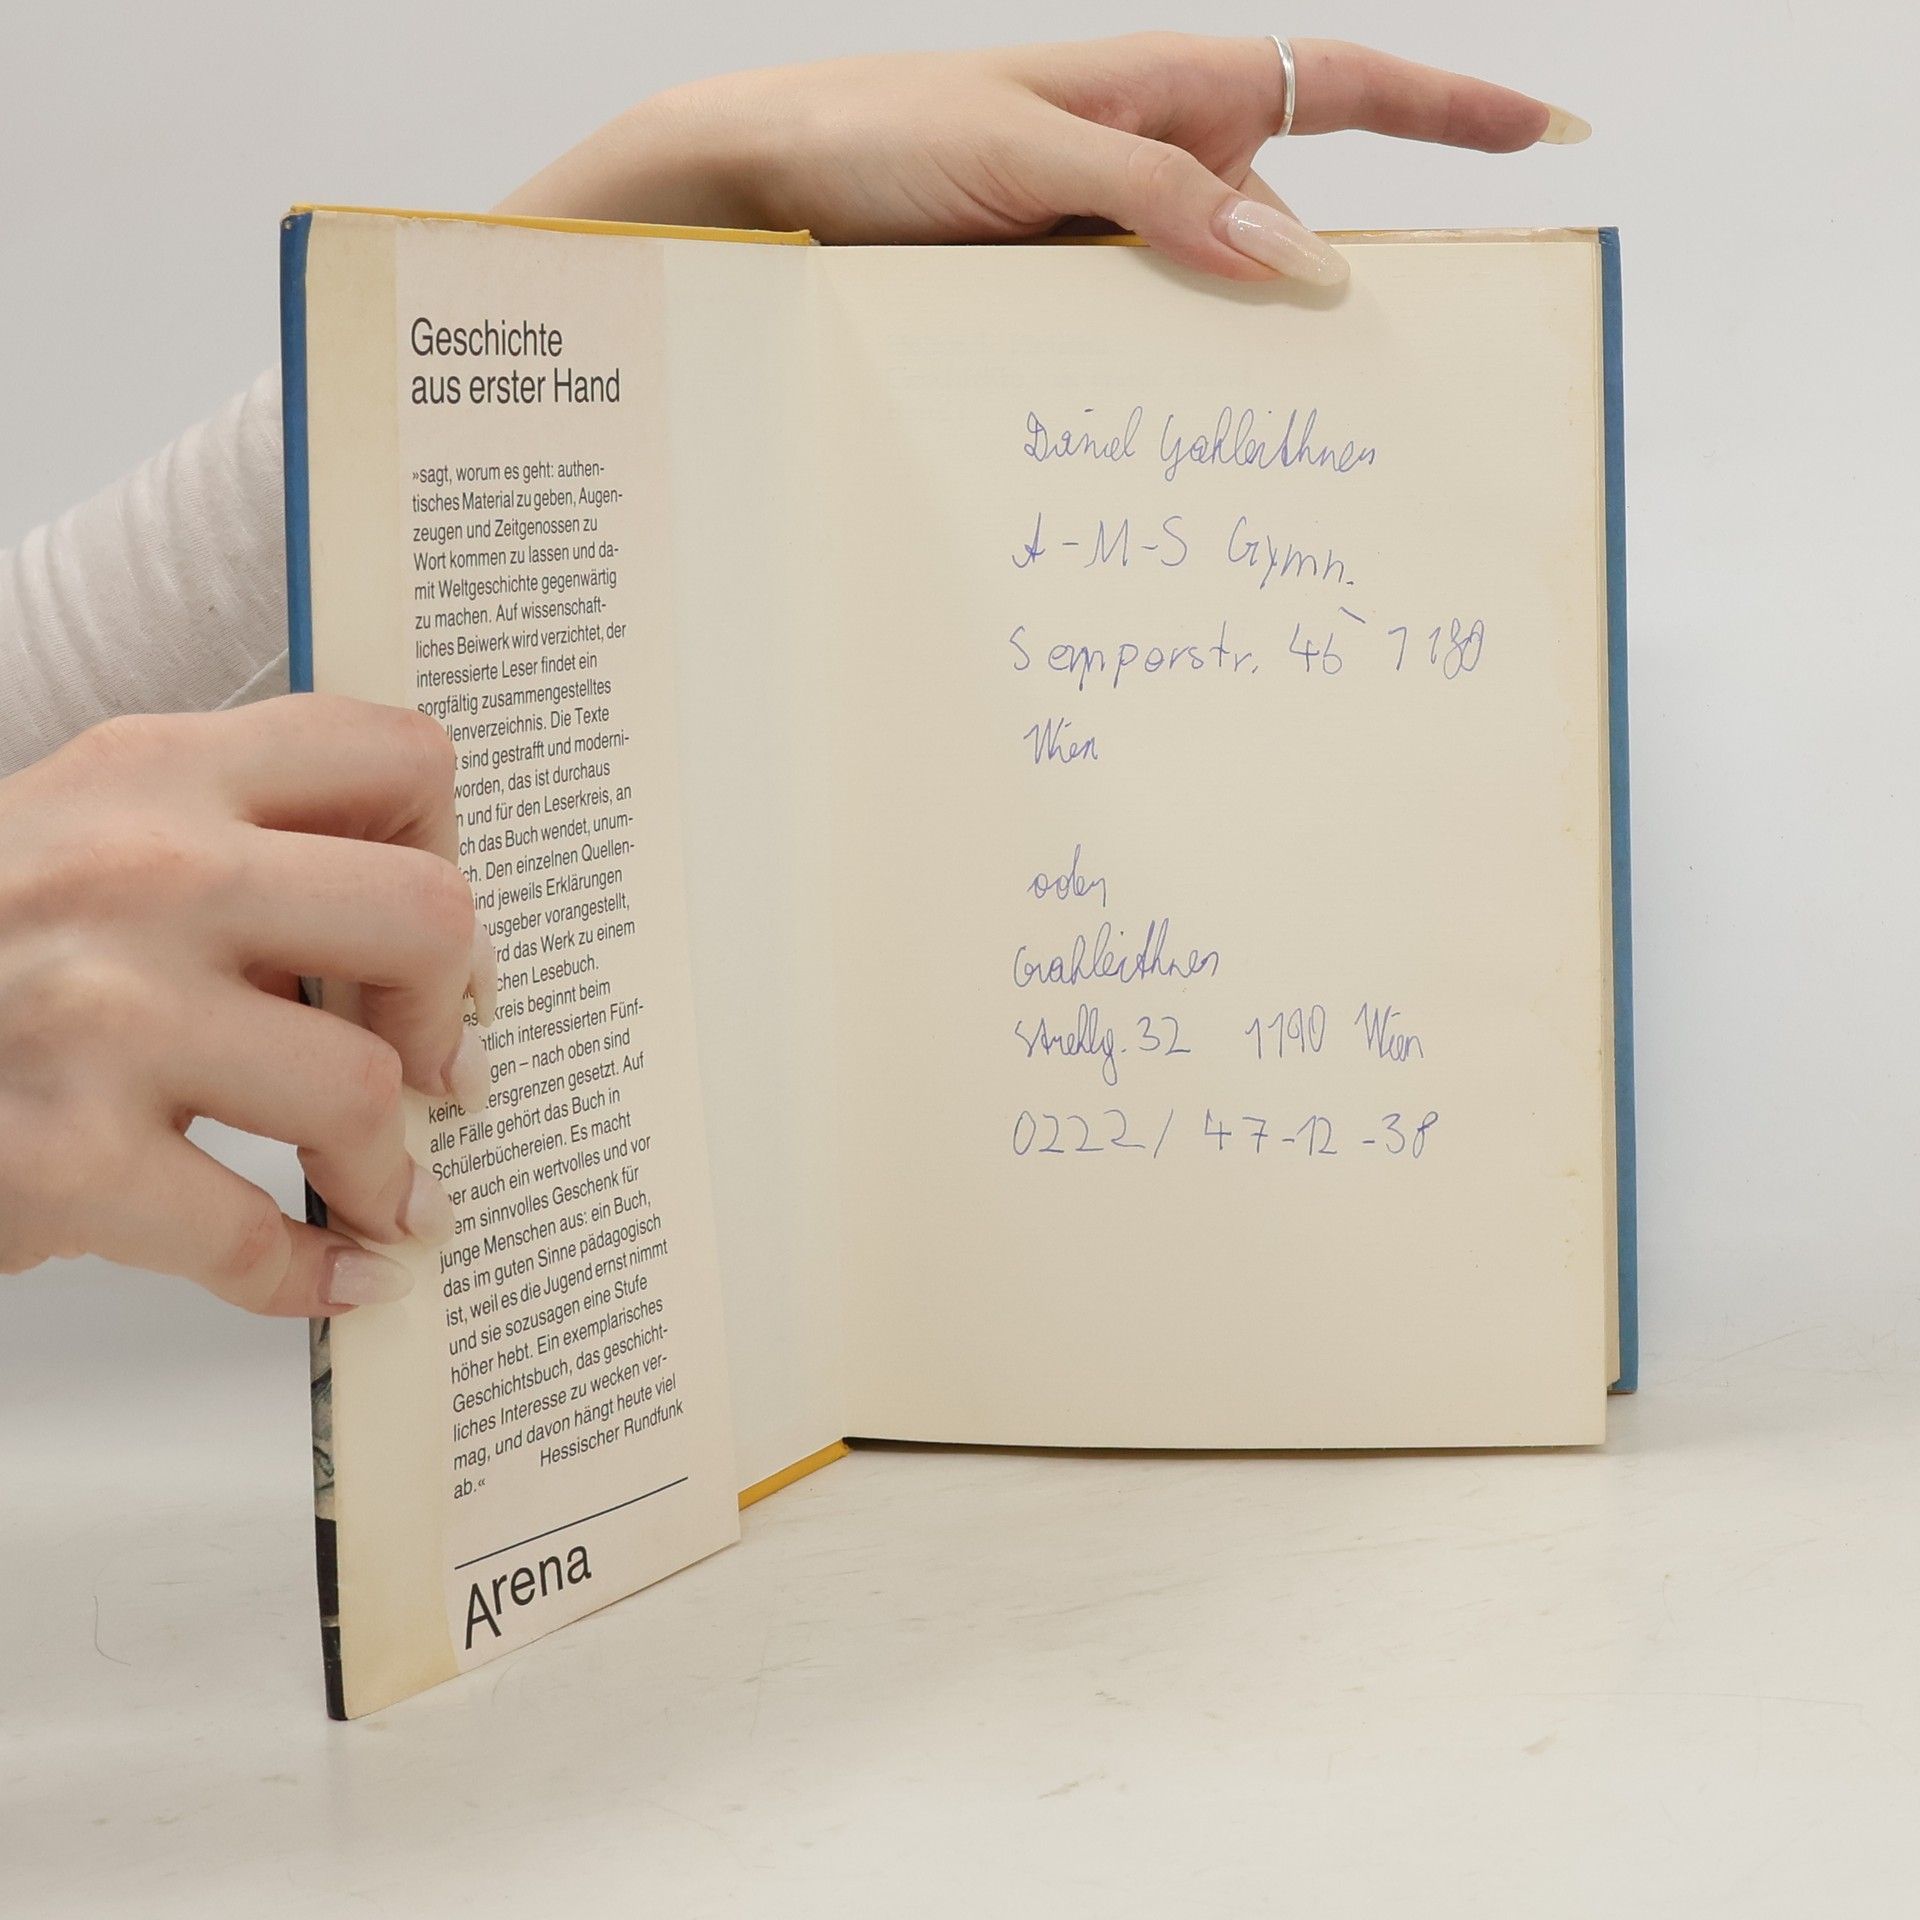 Geschichte
aus erster Hand
»sagt, worum es geht: authen-
tisches Material zu geben, Augen-
zeugen und Zeitgenossen zu
Wort kommen zu lassen und da-
mit Weltgeschichte gegenwärtig
zu machen. Auf wissenschaft-
liches Beiwerk wird verzichtet, der
interessierte Leser findet ein
sorgfältig zusammengestelltes
llenverzeichnis. Die Texte
t sind gestrafft und moderni-
worden, das ist durchaus
n und für den Leserkreis, an
ch das Buch wendet, unum-
ch. Den einzelnen Quellen-
ind jeweils Erklärungen
usgeber vorangestellt,
ird das Werk zu einem
chen Lesebuch.
es kreis beginnt beim
htlich interessierten Fünf-
gen – nach oben sind
keine tersgrenzen gesetzt. Auf
alle Fälle gehört das Buch in
Schülerbüchereien. Es macht
er auch ein wertvolles und vor
em sinnvolles Geschenk für
junge Menschen aus: ein Buch,
das im guten Sinne pädagogisch
ist, weil es die Jugend ernst nimmt
und sie sozusagen eine Stufe
höher hebt. Ein exemplarisches
Geschichtsbuch, das geschicht-
liches Interesse zu wecken ver-
mag, und davon hängt heute viel
ab.« Hessischer Rundfunk
Arena
Daniel Gahleithner
A-M-S Gymn.
Semperstr. 45 1180
Wien
oder
Gahleithner
Strehlg. 32 1190 Wien
0222/ 47-12-38